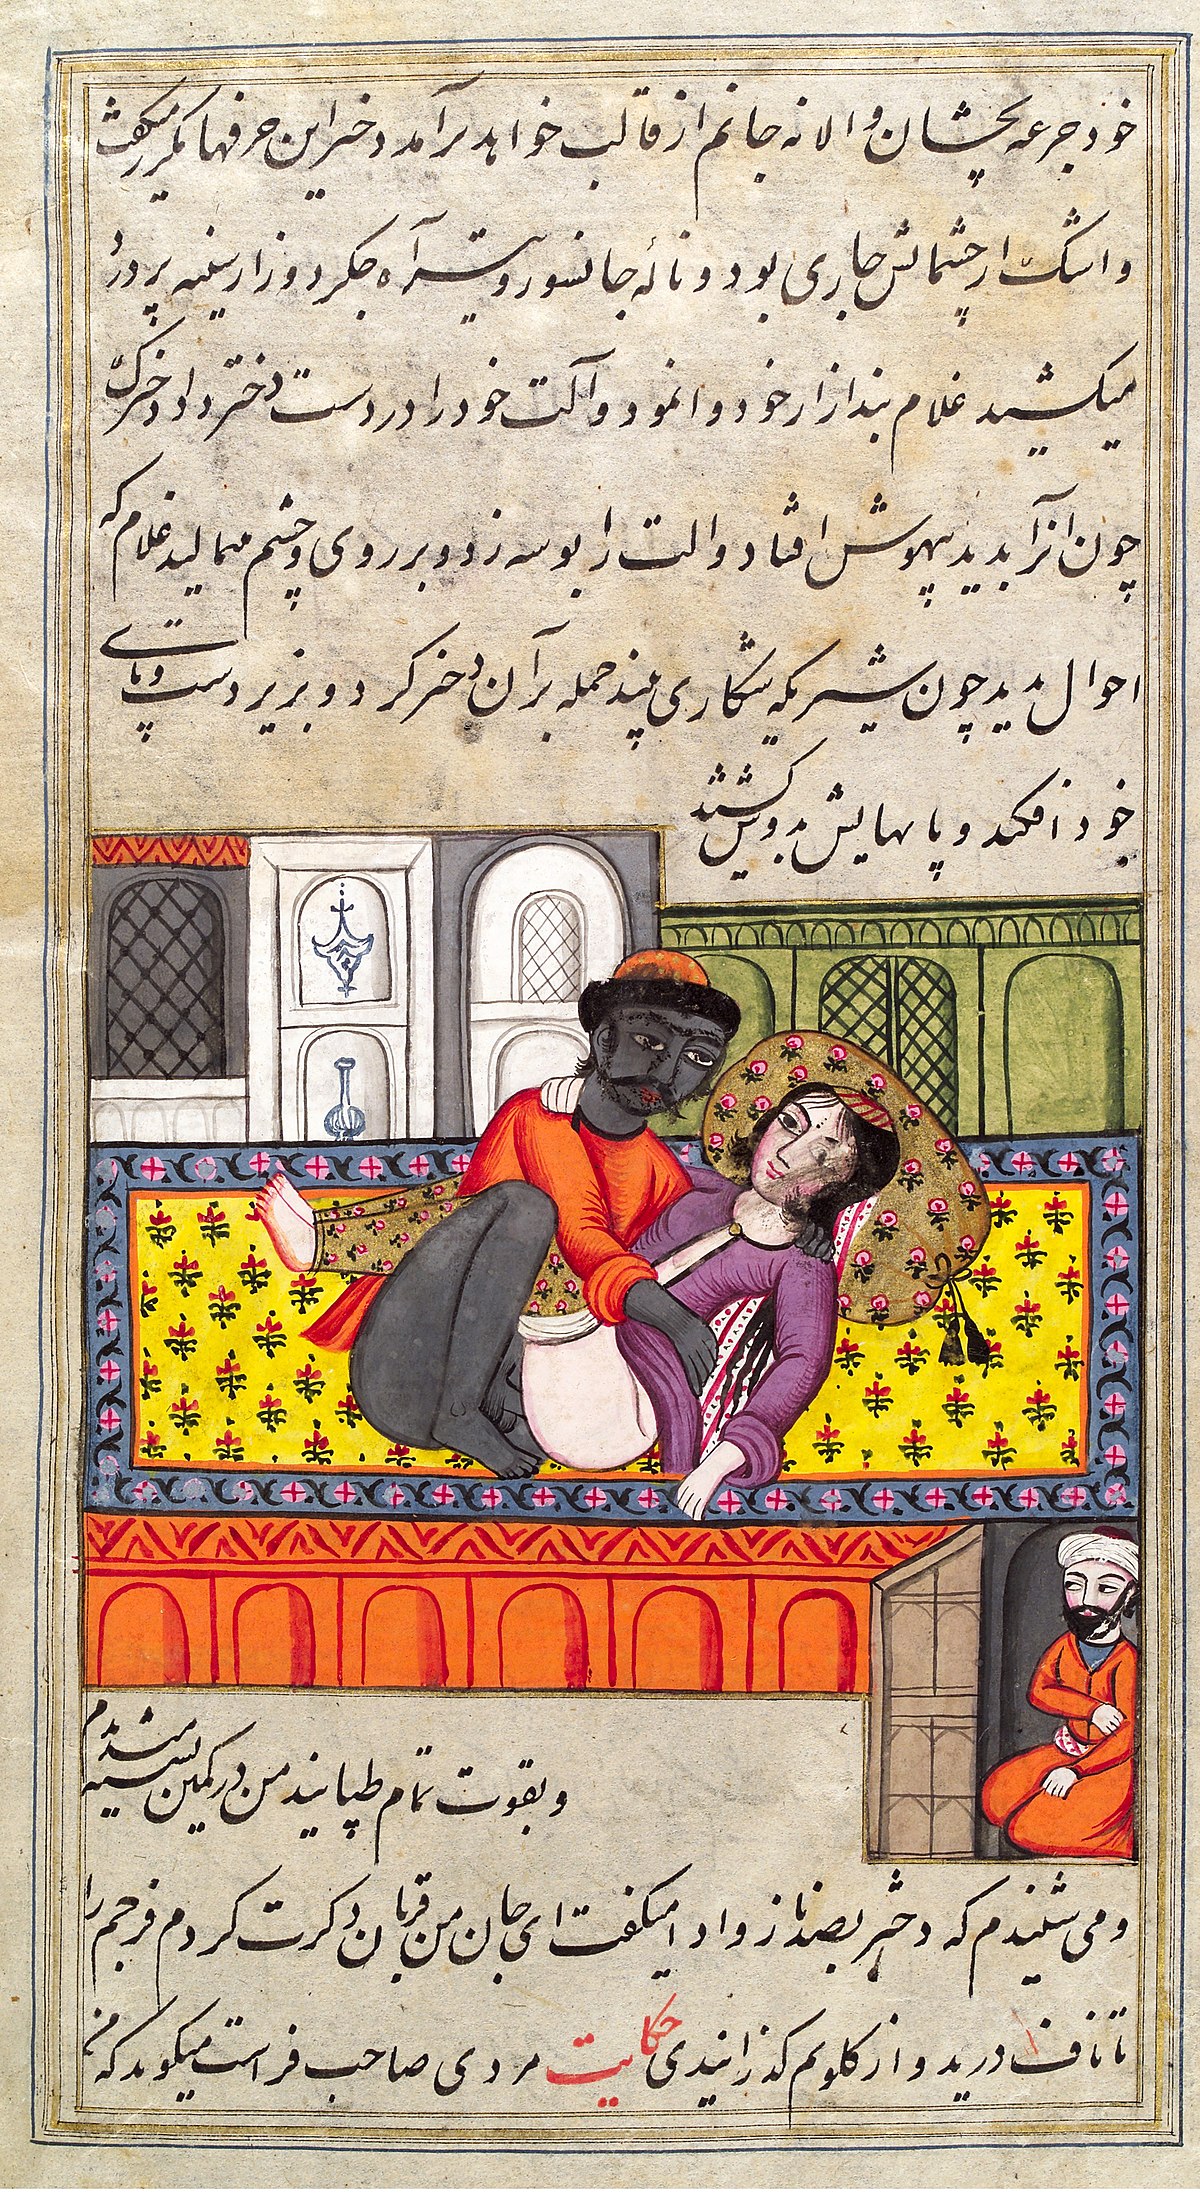 خود جرعه بچشان والا نه جانم از قالب خواهد برآمد دختر این حرفها مکرر میگفت
و اشک از چشمانش جاری بود و نالهٔ جانسوز و تیر آه جگردوز از سینه پر درد
میکشید غلام بند ازار خود وانمود و آلت خود را در دست دختر داد دخترک
چون آنرا بدید بیهوش افتاد و الت را بوسه زد و بر روی و چشم میمالید غلام که
احوال بدید چون شیریکه شکاری بیند حمله بر آن دختر کرد و بزیر دست و پای
خود افکند و پاهایش بدوش کشید
و بقوت تمام طپانید من در کمین نشسته
و می شنیدم که دختر بصد ناز و ادا میگفت ای جان من قربان کرت کردم فرجم را
تا ناف درید و از گلویم گذرانیدی حکایت مردی صاحب فراست میگوید که